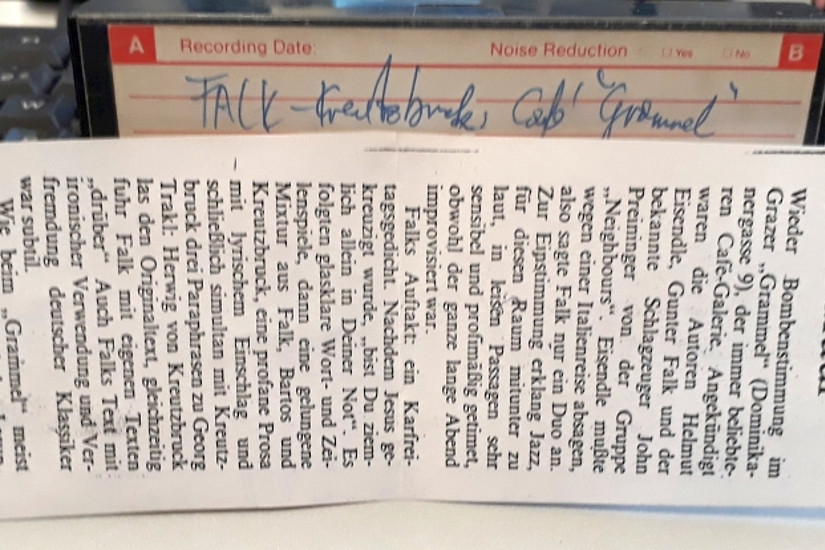 A Recording Date: Noise Reduction Yes No B
FALK – Kreutzbruck, Café "Grammel"
Wieder Bombenstimmung im
Grazer „Grammel“ (Dominika-
nergasse 9), der immer beliebte-
ren Café-Galerie. Angekündigt
waren die Autoren Helmut
Eisendle, Gunter Falk und der
bekannte Schlagzeuger John
Preininger von der Gruppe
„Neighbours“. Eisendle mußte
wegen einer Italienreise absagen,
also sagte Falk nur ein Duo an.
Zur Einstimmung erklang Jazz,
für diesen Raum mitunter zu
laut, in leisen Passagen sehr
sensibel und profimäßig getimet,
obwohl der ganze lange Abend
improvisiert war.
Falks Auftakt: ein Karfrei-
tagsgedicht. Nachdem Jesus ge-
kreuzigt wurde, „bist Du ziem-
lich allein in Deiner Not“. Es
folgten glasklare Wort- und Zei-
lenspiele, dann eine gelungene
Mixtur aus Falk, Bartos und
Kreutzbruck, eine profane Prosa
– mit lyrischem Einschlag und
schließlich simultan mit Kreutz-
bruck drei Paraphrasen zu Georg
Trakl: Herwig von Kreutzbruck
las den Originaltext, gleichzeitig
fuhr Falk mit eigenen Texten
„drüber“. Auch Falks Text mit
ironischer Verwendung und Ver-
fremdung deutscher Klassiker
war subtil.
Wie beim „Grammel“ meist